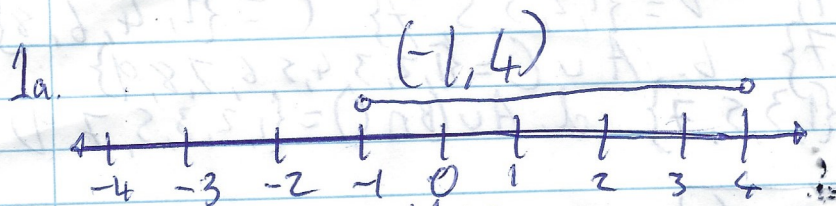 (-1, 4)
1a.
-4 -3 -2 -1 0 1 2 3 4